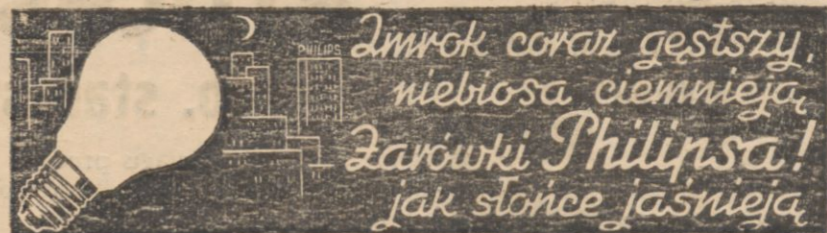 PHILIPS
Zmrok coraz gęstszy,
niebiosa ciemnieją
Żarówki Philipsa!
jak słońce jaśnieją